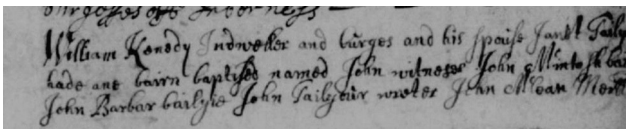 burgesses of Inverness
William Kenedy Indweller and burges and his spouse Janet Taily
hade ane bairn baptised named John witneses John Mintosh bai
John Barbar bailyie John Tailyeur writer John Mcean Mer